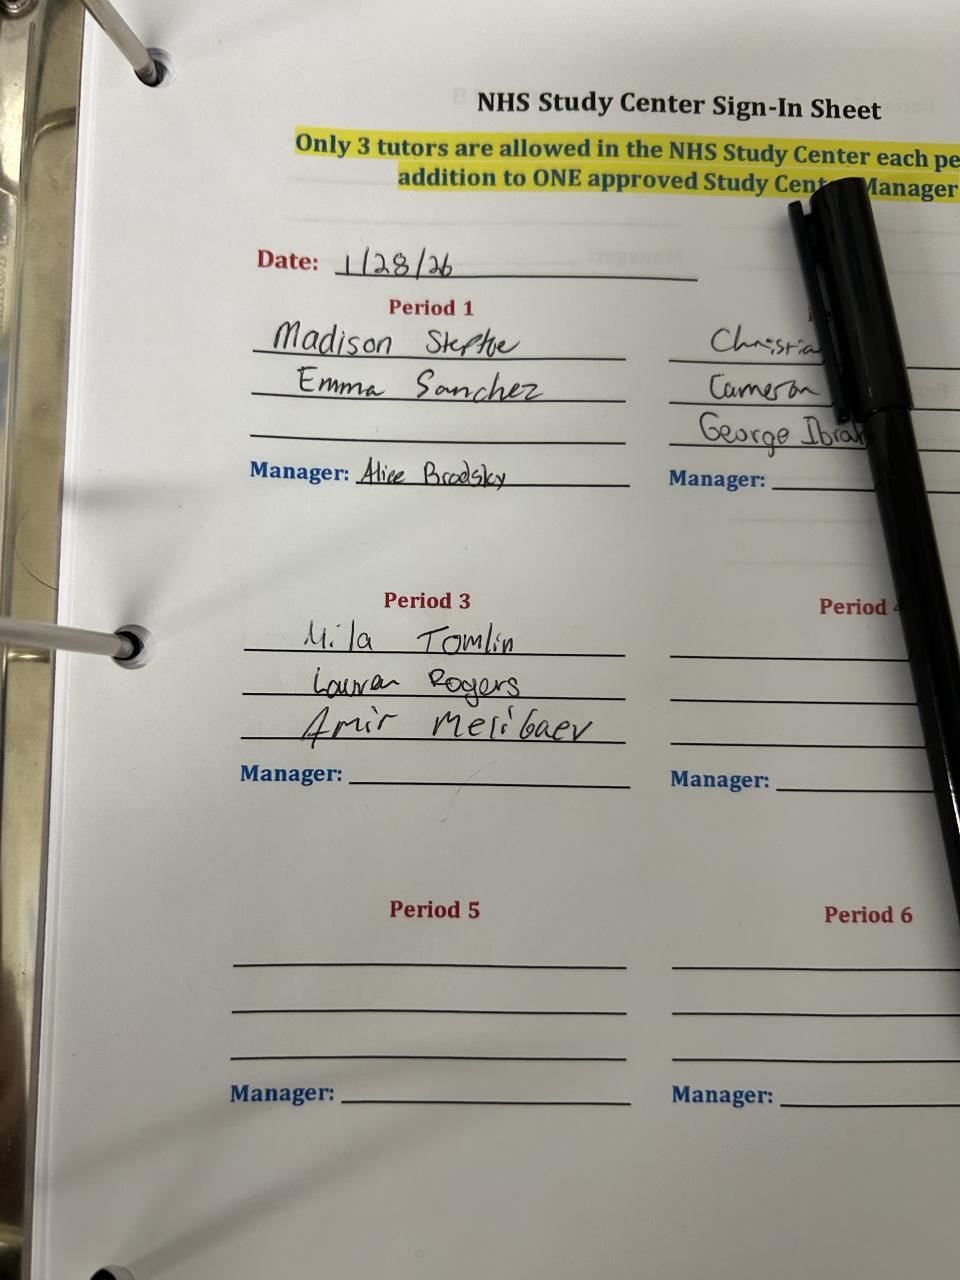 NHS Study Center Sign-In Sheet
Only 3 tutors are allowed in the NHS Study Center each
addition to ONE approved Study Manager
Date: 1/28/26
Period 1
Madison Steptoe
Christia
Emma Sanchez
Cameron
George
Manager: Alice Brodsky
Manager:
Period 3
Period
Mila Tomlin
Lauren Rogers
Amir Melibaev
Manager:
Manager:
Period 5
Period 6
Manager:
Manager: